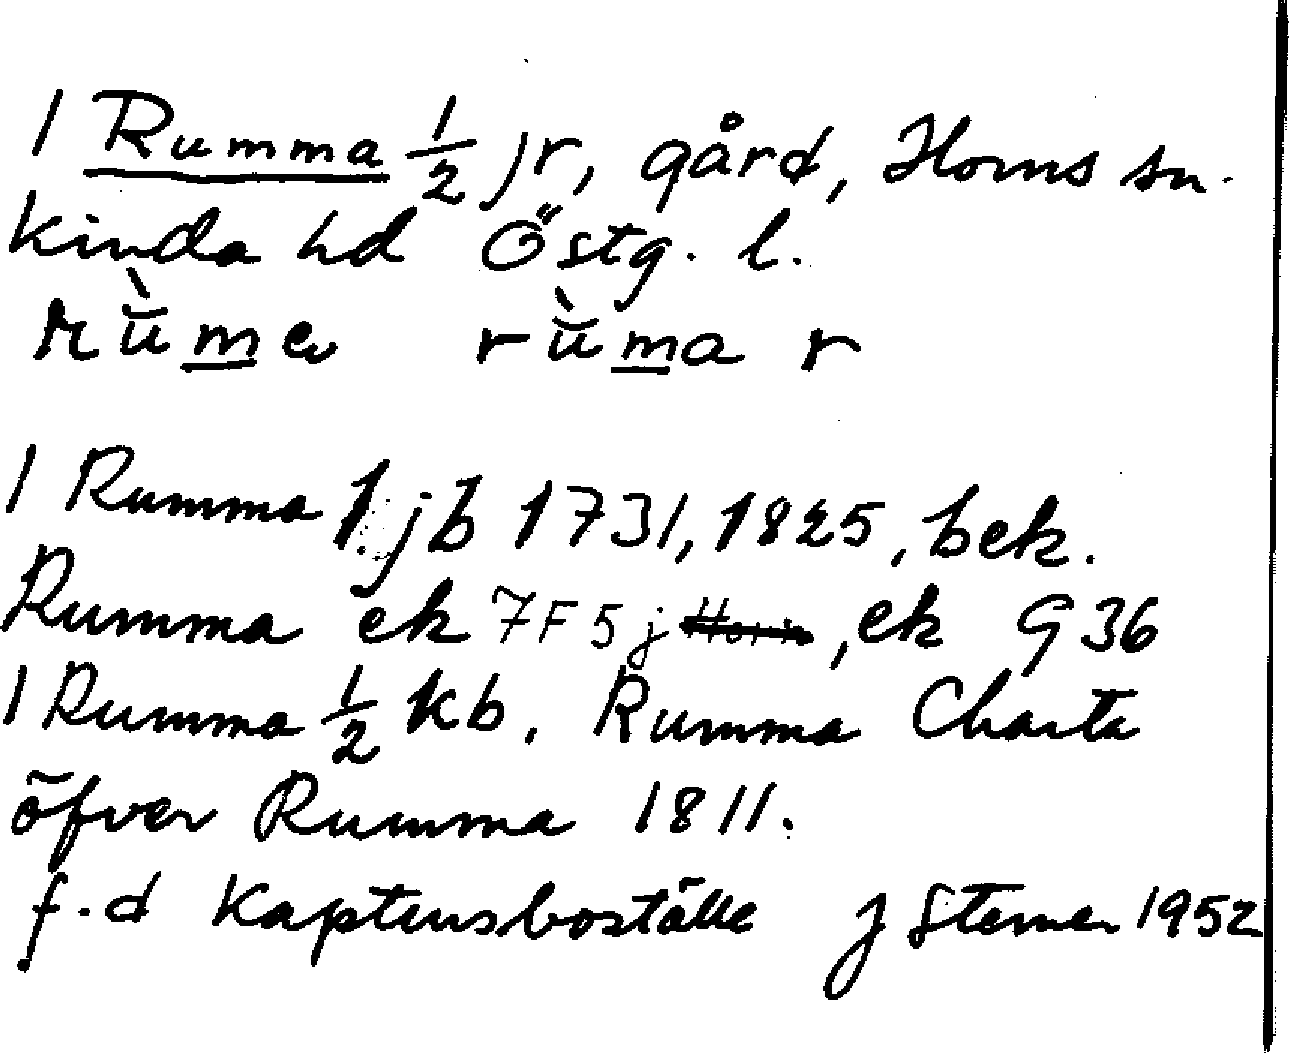 1 Rumma ½ jr, gård, Horns sn.
Kinda hd Östg. l.
rùma rùma r
1 Rumma 1. jb 1731, 1825, bek.
Rumma ek 7F5j Horn, ek G36
1 Rumma ½ kb. Rumma Charta
öfver Rumma 1811.
f.d Kaptensboställe J Sterner 1952